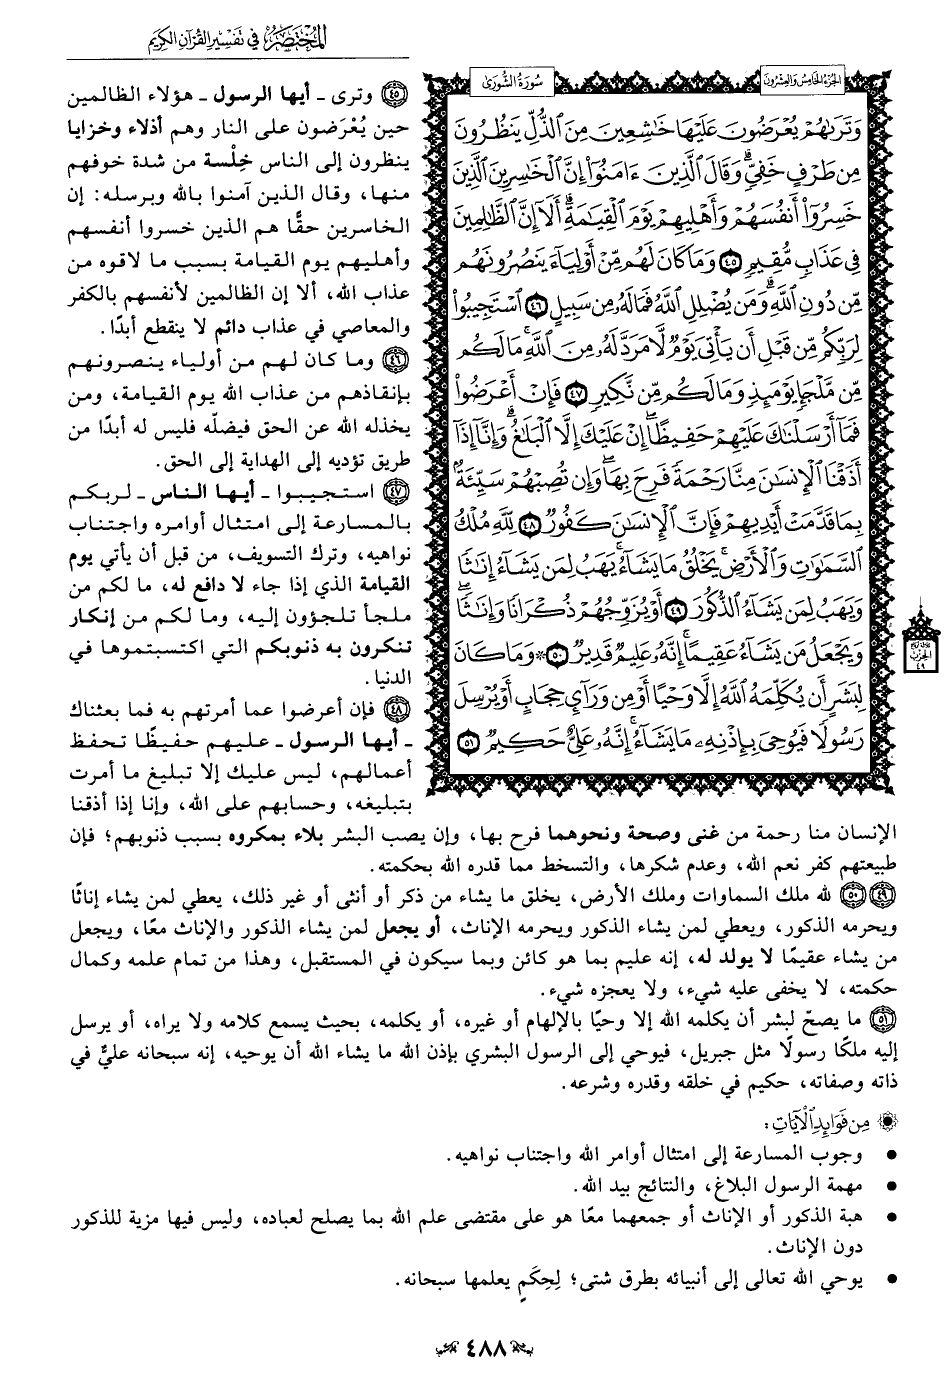 المختصر في تفسير القرآن الكريم
الجزء الخامس والعشرون
سورة الشورى
وَتَرَىٰهُمْ يُعْرَضُونَ عَلَيْهَا خَٰشِعِينَ مِنَ ٱلذُّلِّ يَنظُرُونَ
مِن طَرْفٍ خَفِىٍّ وَقَالَ ٱلَّذِينَ ءَامَنُوٓا۟ إِنَّ ٱلْخَٰسِرِينَ ٱلَّذِينَ
خَسِرُوٓا۟ أَنفُسَهُمْ وَأَهْلِيهِمْ يَوْمَ ٱلْقِيَٰمَةِ أَلَآ إِنَّ ٱلظَّٰلِمِينَ
فِى عَذَابٍ مُّقِيمٍ ٤٥ وَمَا كَانَ لَهُم مِّنْ أَوْلِيَآءَ يَنصُرُونَهُم
مِّن دُونِ ٱللَّهِ وَمَن يُضْلِلِ ٱللَّهُ فَمَا لَهُۥ مِن سَبِيلٍ ٤٦ ٱسْتَجِيبُوا۟
لِرَبِّكُم مِّن قَبْلِ أَن يَأْتِىَ يَوْمٌ لَّا مَرَدَّ لَهُۥ مِنَ ٱللَّهِ مَا لَكُم
مِّن مَّلْجَإٍ يَوْمَئِذٍ وَمَا لَكُم مِّن نَّكِيرٍ ٤٧ فَإِنْ أَعْرَضُوا۟
فَمَآ أَرْسَلْنَٰكَ عَلَيْهِمْ حَفِيظًا إِنْ عَلَيْكَ إِلَّا ٱلْبَلَٰغُ وَإِنَّآ إِذَآ
أَذَقْنَا ٱلْإِنسَٰنَ مِنَّا رَحْمَةً فَرِحَ بِهَا وَإِن تُصِبْهُمْ سَيِّئَةٌۢ
بِمَا قَدَّمَتْ أَيْدِيهِمْ فَإِنَّ ٱلْإِنسَٰنَ كَفُورٌ ٤٨ لِّلَّهِ مُلْكُ
ٱلسَّمَٰوَٰتِ وَٱلْأَرْضِ يَخْلُقُ مَا يَشَآءُ يَهَبُ لِمَن يَشَآءُ إِنَٰثًا
وَيَهَبُ لِمَن يَشَآءُ ٱلذُّكُورَ ٤٩ أَوْ يُزَوِّجُهُمْ ذُكْرَانًا وَإِنَٰثًا
وَيَجْعَلُ مَن يَشَآءُ عَقِيمًا إِنَّهُۥ عَلِيمٌ قَدِيرٌ ٥٠ ۞ وَمَا كَانَ
لِبَشَرٍ أَن يُكَلِّمَهُ ٱللَّهُ إِلَّا وَحْيًا أَوْ مِن وَرَآئِ حِجَابٍ أَوْ يُرْسِلَ
رَسُولًا فَيُوحِىَ بِإِذْنِهِۦ مَا يَشَآءُ إِنَّهُۥ عَلِىٌّ حَكِيمٌ ٥١
الحزب
٤٩
٤٥ وترى ـ أيها الرسول ـ هؤلاء الظالمين
حين يُعْرَضون على النار وهم أذلاء وخزايا
ينظرون إلى الناس خِلْسة من شدة خوفهم
منها، وقال الذين آمنوا بالله وبرسله: إن
الخاسرين حقًّا هم الذين خسروا أنفسهم
وأهليهم يوم القيامة بسبب ما لاقوه من
عذاب الله، ألا إن الظالمين لأنفسهم بالكفر
والمعاصي في عذاب دائم لا ينقطع أبدًا.
٤٦ وما كان لهم من أولياء ينصرونهم
بإنقاذهم من عذاب الله يوم القيامة، ومن
يخذله الله عن الحق فيضلّه فليس له أبدًا من
طريق تؤديه إلى الهداية إلى الحق.
٤٧ استجيبوا ـ أيها الناس ـ لربكم
بالمسارعة إلى امتثال أوامره واجتناب
نواهيه، وترك التسويف، من قبل أن يأتي يوم
القيامة الذي إذا جاء لا دافع له، ما لكم من
ملجأ تلجؤون إليه، وما لكم من إنكار
تنكرون به ذنوبكم التي اكتسبتموها في
الدنيا.
٤٨ فإن أعرضوا عما أمرتهم به فما بعثناك
ـ أيها الرسول ـ عليهم حفيظًا تحفظ
أعمالهم، ليس عليك إلا تبليغ ما أمرت
بتبليغه، وحسابهم على الله، وإنا إذا أذقنا
الإنسان منا رحمة من غنى وصحة ونحوهما فرح بها، وإن يصب البشر بلاء بمكروه بسبب ذنوبهم؛ فإن
طبيعتهم كفر نعم الله، وعدم شكرها، والتسخط مما قدره الله بحكمته.
٤٩ ٥٠ لله ملك السماوات وملك الأرض، يخلق ما يشاء من ذكر أو أنثى أو غير ذلك، يعطي لمن يشاء إناثًا
ويحرمه الذكور، ويعطي لمن يشاء الذكور ويحرمه الإناث، أو يجعل لمن يشاء الذكور والإناث معًا، ويجعل
من يشاء عقيمًا لا يولد له، إنه عليم بما هو كائن وبما سيكون في المستقبل، وهذا من تمام علمه وكمال
حكمته، لا يخفى عليه شيء، ولا يعجزه شيء.
٥١ ما يصحّ لبشر أن يكلمه الله إلا وحيًا بالإلهام أو غيره، أو يكلمه، بحيث يسمع كلامه ولا يراه، أو يرسل
إليه ملكًا رسولًا مثل جبريل، فيوحي إلى الرسول البشري بإذن الله ما يشاء الله أن يوحيه، إنه سبحانه عليٌّ في
ذاته وصفاته، حكيم في خلقه وقدره وشرعه.
من فوائد الآيات:
• وجوب المسارعة إلى امتثال أوامر الله واجتناب نواهيه.
• مهمة الرسول البلاغ، والنتائج بيد الله.
• هبة الذكور أو الإناث أو جمعهما معًا هو على مقتضى علم الله بما يصلح لعباده، وليس فيها مزية للذكور
دون الإناث.
• يوحي الله تعالى إلى أنبيائه بطرق شتى؛ لِحِكَمٍ يعلمها سبحانه.
٤٨٨